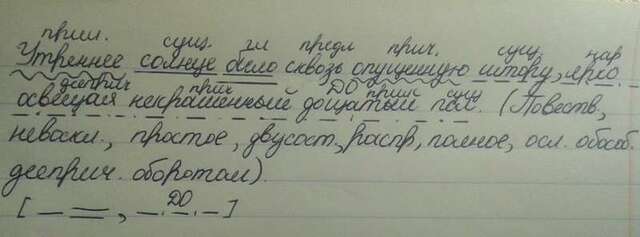 прил. сущ. гл предл прич. сущ. нар
Утреннее солнце било сквозь опущенную штору, ярко
дееприч прич ДО прил сущ
освещая некрашенный дощатый пол. (Повеств,
невоскл., простое, двусост., распр, полное, осл. обособ.
дееприч. оборотом).
ДО
[ , ]